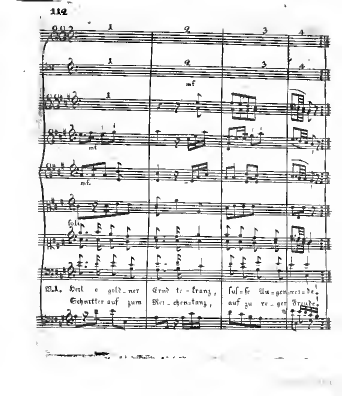 112
1 2 3 4
1 2 3 4
mf
1
mf
mf.
Heil o gold-ner Ernd te-kranz, sü-ße Au-gen weide
Schnitter auf zum Rei-chentanz, auf zu re-ger Freude